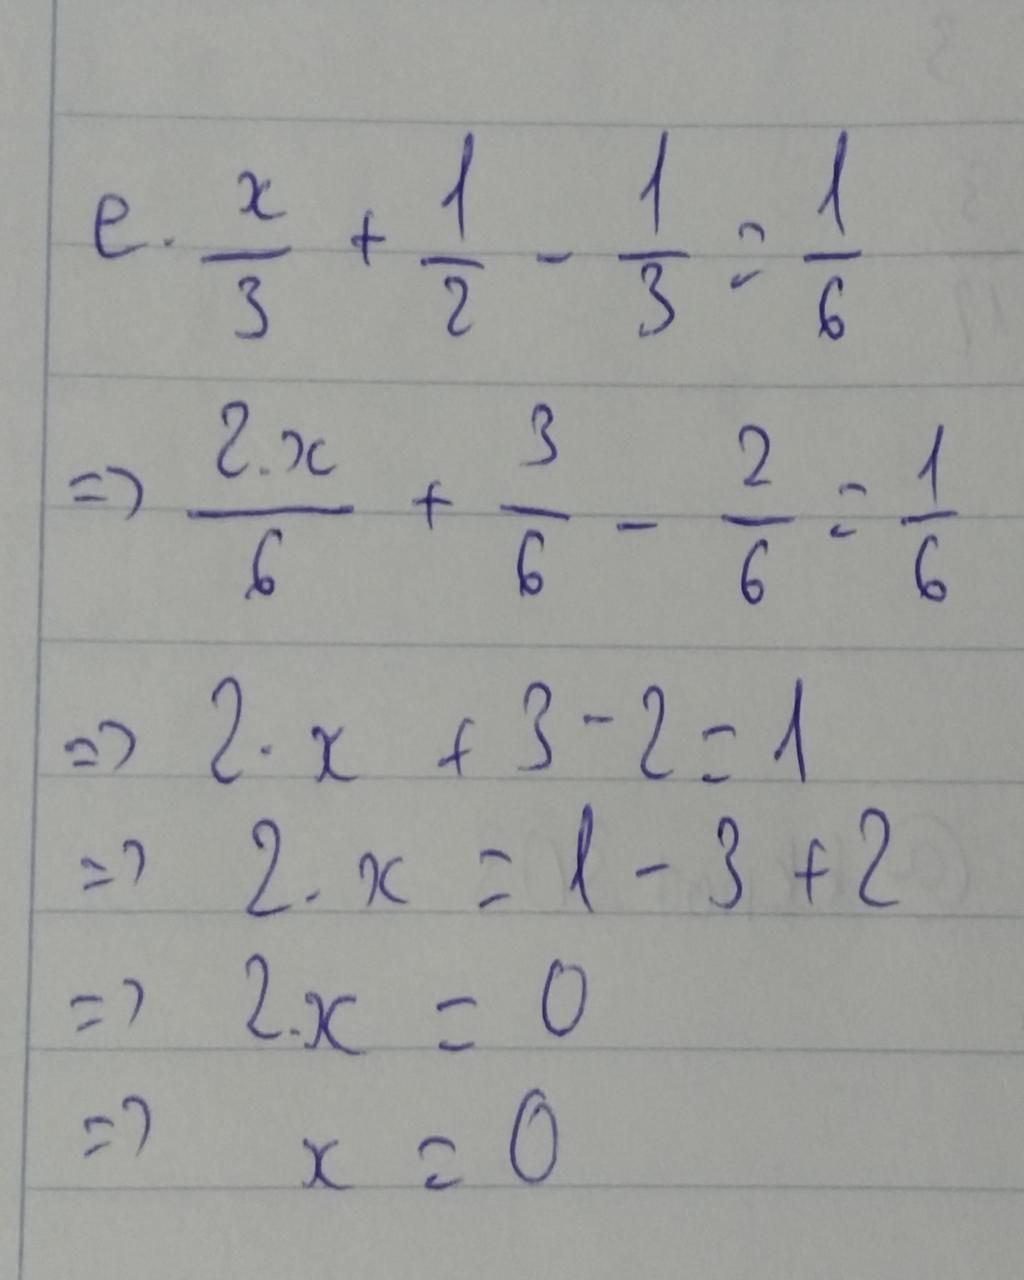 e. x/3 + 1/2 - 1/3 = 1/6
=> 2.x/6 + 3/6 - 2/6 = 1/6
=> 2. x + 3 - 2 = 1
=> 2. x = 1 - 3 + 2
=> 2.x = 0
=> x = 0